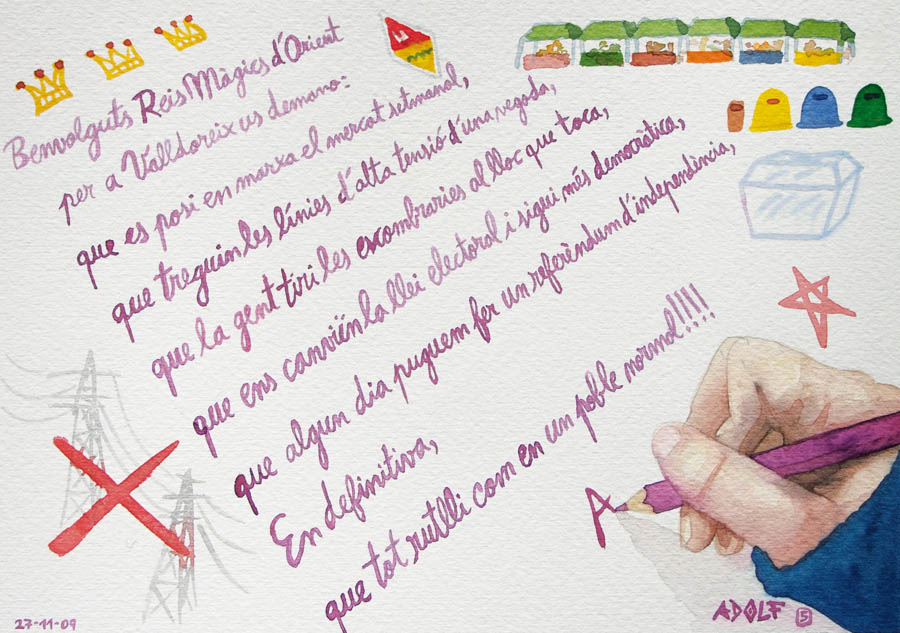 Benvolguts Reis Màgics d'Orient
per a Valldoreix us demano:
que es posi en marxa el mercat setmanal,
que treguin les línies d'alta tensió d'una vegada,
que la gent tiri les escombraries al lloc que toca,
que ens canviïn la llei electoral i sigui més democràtica,
que algun dia puguem fer un referèndum d'independència,
En definitiva,
que tot rutlli com en un poble normal!!!!
A
ADOLF 5
27-11-09